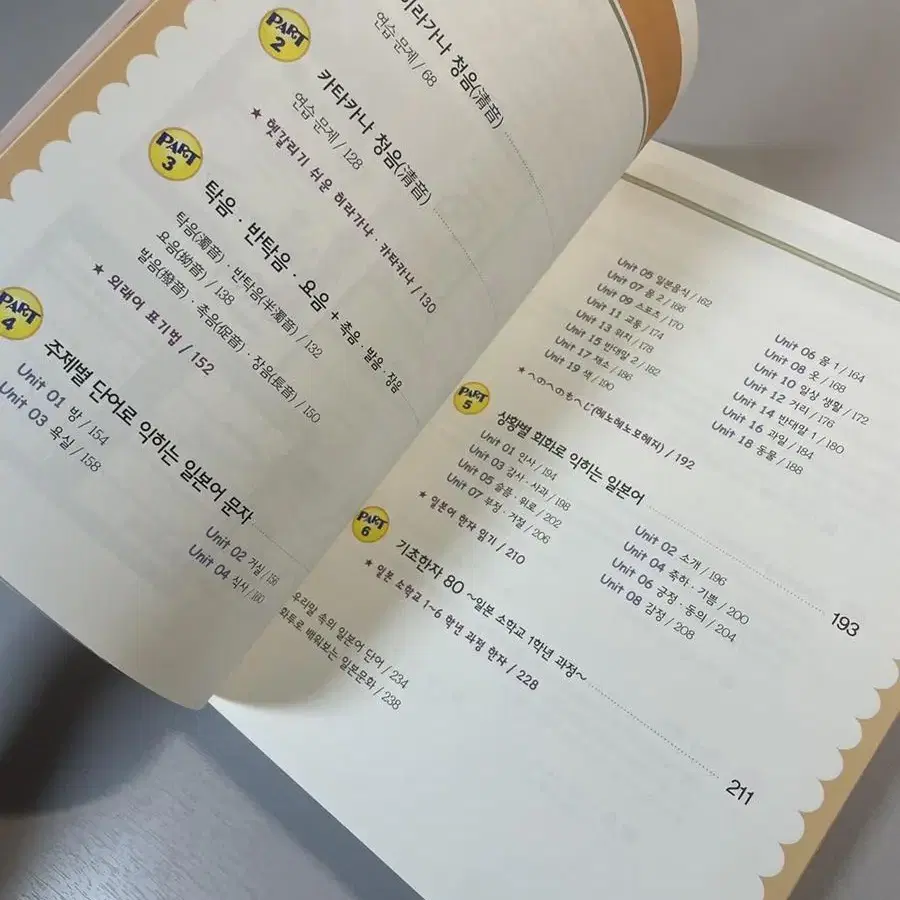 히라가나 청음(清音)
연습 문제 / 68
PART 2
카타카나 청음(清音)
연습 문제 / 128
★ 헷갈리기 쉬운 히라가나 · 카타카나 / 130
PART 3
탁음 · 반탁음 · 요음 + 촉음 · 발음 · 장음
탁음(濁音) · 반탁음(半濁音) / 132
요음(拗音) / 138
발음(撥音) · 촉음(促音) · 장음(長音) / 150
★ 외래어 표기법 / 152
PART 4
주제별 단어로 익히는 일본어 문자
Unit 01 방 / 154
Unit 02 거실 / 156
Unit 03 욕실 / 158
Unit 04 식사 / 160
Unit 05 일본음식 / 162
Unit 06 몸 1 / 164
Unit 07 몸 2 / 166
Unit 08 옷 / 168
Unit 09 스포츠 / 170
Unit 10 일상 생활 / 172
Unit 11 교통 / 174
Unit 12 거리 / 176
Unit 13 위치 / 178
Unit 14 반대말 1 / 180
Unit 15 반대말 2 / 182
Unit 16 과일 / 184
Unit 17 채소 / 186
Unit 18 동물 / 188
Unit 19 색 / 190
★ へのへのもへじ(헤노헤노모헤지) / 192
PART 5
상황별 회화로 익히는 일본어 193
Unit 01 인사 / 194
Unit 02 소개 / 196
Unit 03 감사 · 사과 / 198
Unit 04 축하 · 기쁨 / 200
Unit 05 슬픔 · 위로 / 202
Unit 06 긍정 · 동의 / 204
Unit 07 부정 · 거절 / 206
Unit 08 감정 / 208
★ 일본어 한자 읽기 / 210
PART 6
기초한자 80 ~일본 소학교 1학년 과정~ 211
★ 일본 소학교 1~6 학년 과정 한자 / 228
우리말 속의 일본어 단어 / 234
화투로 배워보는 일본문화 / 238